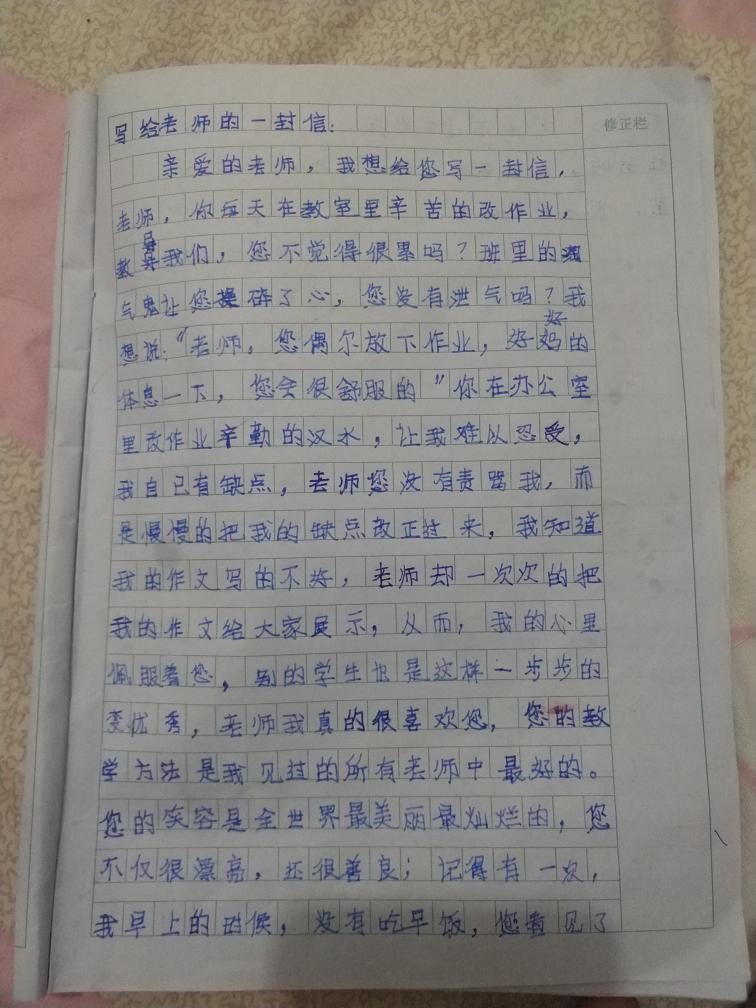 修正栏
写给老师的一封信:
亲爱的老师,我想给您写一封信,
老师,你每天在教室里辛苦的改作业,
教导我们,您不觉得很累吗?班里的淘
气鬼让您操碎了心,您没有泄气吗?我
想说:"老师,您偶尔放下作业,好好的
体息一下,您会很舒服的"你在办公室
里改作业辛勤的汉水,让我难以忍受,
我自已有缺点,老师您没有责骂我,而
是慢慢的把我的缺点改正过来,我知道
我的作文写的不好,老师却一次次的把
我的作文给大家展示,从而,我的心里
佩服着您,别的学生也是这样一步步的
变优秀,老师我真的很喜欢您,您的教
学方法是我见过的所有老师中最好的。
您的笑容是全世界最美丽最灿烂的,您
不仅很漂亮,还很善良;记得有一次,
我早上的时候,没有吃早饭,您看见了